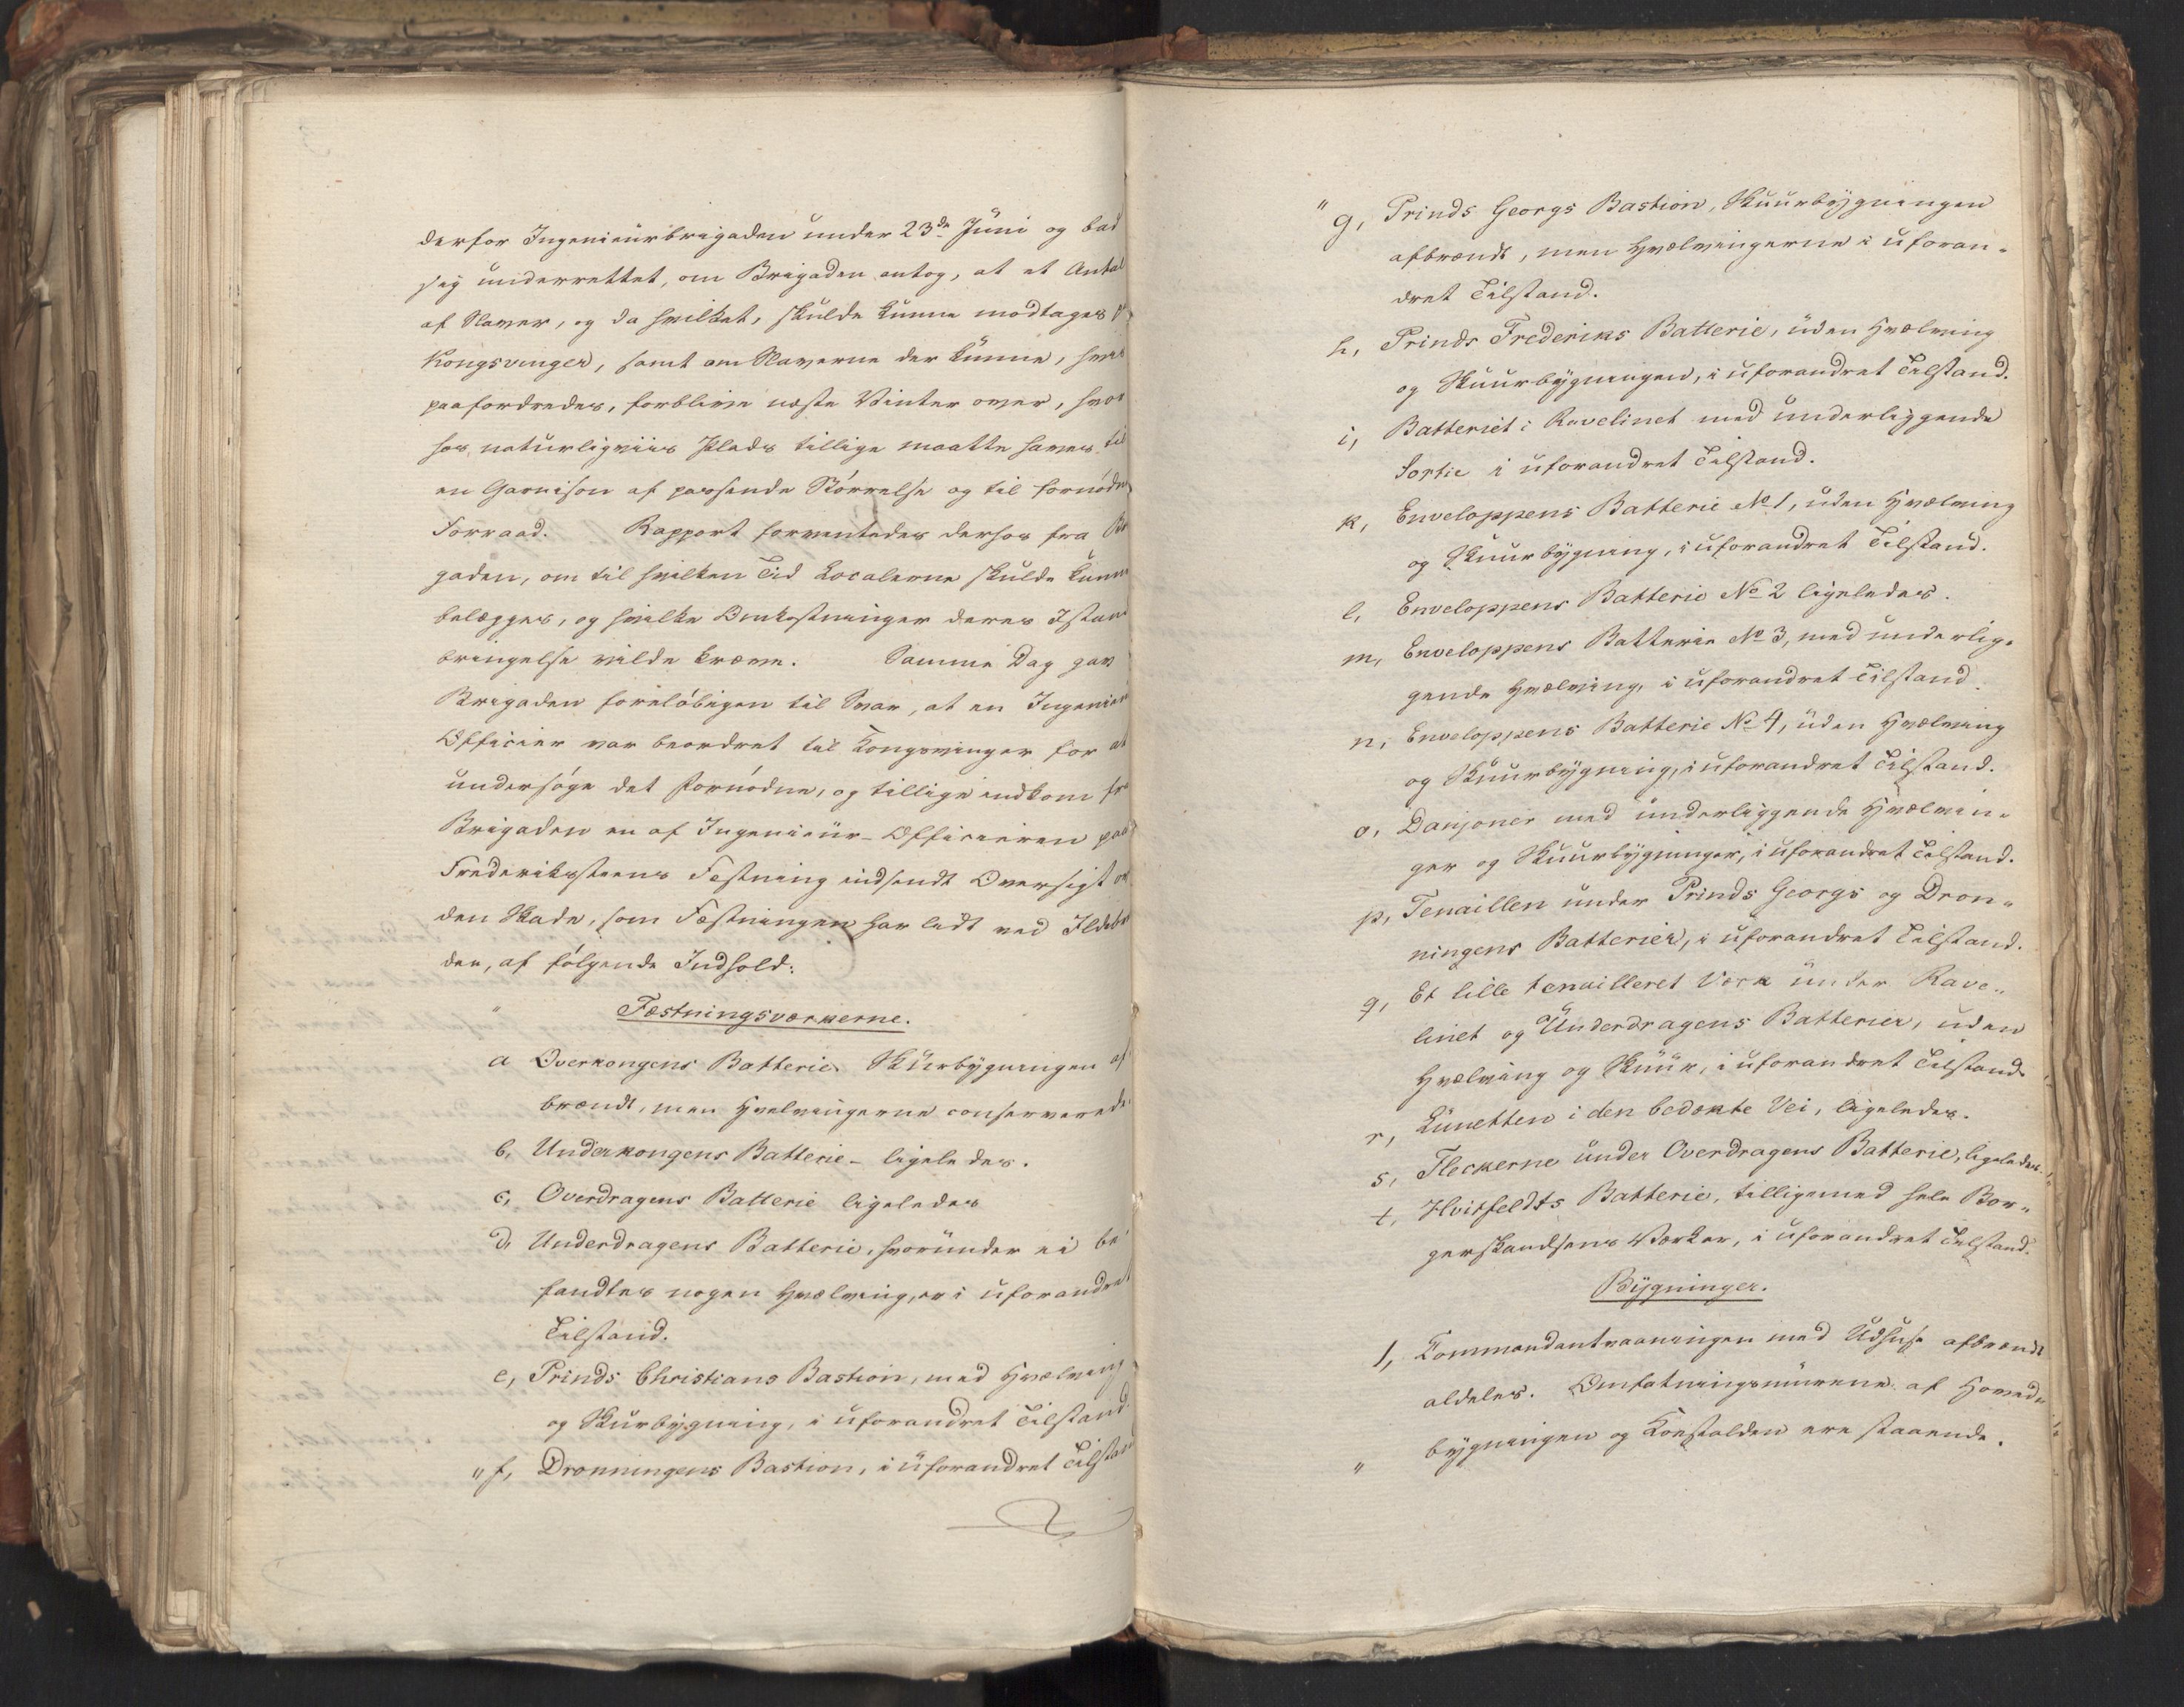 derfor Ingenieurbrigaden under 23de Juni og bad
sig underrettet, om Brigaden antog, at et Antal
af Slaver, og da hvilket, skulde kunne modtages
Kongsvinger, samt om Slaverne der kunne, hvis
paafordredes, forblive næste Vinter over, hvor
hos naturligviis Plads tillige maatte haves til
en Garnison af passende Störrelse og til fornödne
Forraad. Rapport forventedes derhos fra Bri
gaden, om til hvilken Tid Localerne skulde kunne
belægges, og hvilke Omkostninger deres Istand
bringelse vilde kræve. Samme Dag gav
Brigaden forelöbigen til Svar, at en Ingenieur
Officier var beordret til Kongsvinger for at
undersöge det Fornödne, og tillige indkom fra
Brigaden en af Ingenieur-Officieren paa
Frederikssteens Fæstning indsendt Oversigt
den Skade, som Fæstningen har lidt ved Ildebran
den, af fölgende Indhold:
" Fæstningsværkerne.
a Overkongens Batterie. Skurbygningen af
brændt, men Hvelvingerne conserverede.
b, Underkongens Batterie - ligeledes.
c, Overdragens Batterie ligeledes
d, Underdragens Batterie, hvorunder ei be
fandtes nogen Hvælving, er i uforandret
Tilstand.
e, Prinds Christians Bastion, med Hvælving
og Skurbygning, i uforandret Tilstand.
" f, Dronningens Bastion, i uforandret Tilstand
" g, Prinds Georgs Bastion, Skuurbygningen
afbrændt, men Hvælvingerne i uforan-
dret Tilstand.
h, Prinds Frederiks Batterie, uden Hvælving
og Skuurbygningen, i uforandret Tilstand.
i, Batteriet i Ravelinet med underliggende
Sortie i uforandret Tilstand.
k, Enveloppens Batterie No 1, uden Hvælving
og Skuurbygning, i uforandret Tilstand.
l, Enveloppens Batterie No 2 ligeledes.
m, Enveloppens Batterie No 3, med underlig-
gende Hvælving, i uforandret Tilstand.
n, Enveloppens Batterie No 4, uden Hvælving
og Skuurbygning, i uforandret Tilstand.
o, Donjoner med underliggende Hvælvin-
ger og Skuurbygninger, i uforandret Tilstand.
p, Tenaillen under Prinds Georgs og Dron-
ningens Batterier, i uforandret Tilstand.
q, Et lille tenailleret Værk under Rave-
linet og Underdragens Batterier, uden
Hvælving og Skuur, i uforandret Tilstand.
r, Lunetten i den bedækte Vei, ligeledes.
s, Fleckerne under Overdragens Batterie, ligeledes.
t, Hvitfeldts Batterie, tilligemed hele Bor-
gerskandsens Værker, i uforandret Tilstand.
Bygninger.
1, Commandantvaaningen med Udhuse afbrændt
aldeles. Omfatningsmurene af Hoved-
" bygningen og Koestalden ere staaende.